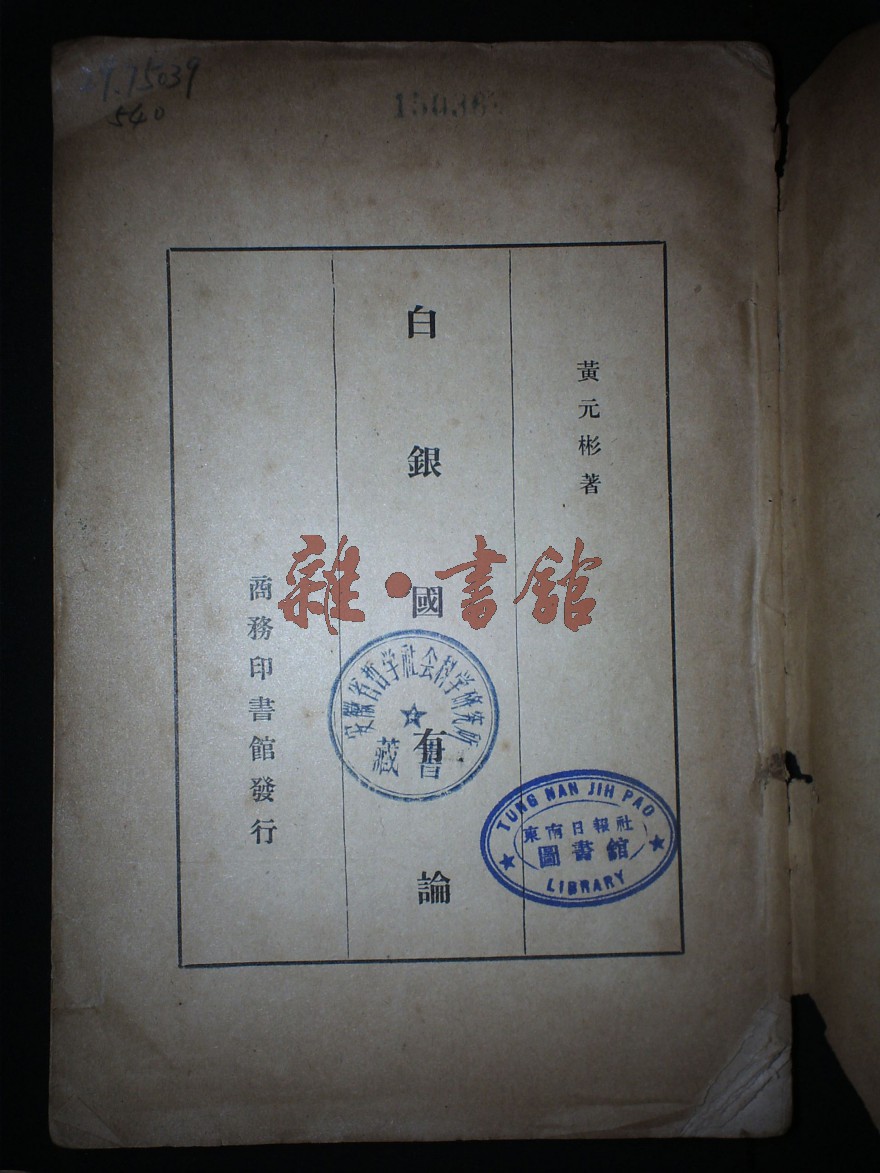 29.75039
540
黃元彬著
白銀國有論
商務印書館發行
雜·書館
安徽省哲学社会科学研究所
藏書
TUNG NAN JIH PAO
東南日報社
圖書館
LIBRARY